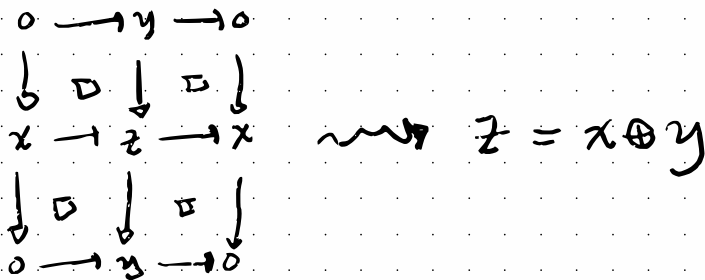 0 → y → 0
↓ □ ↓ □ ↓
x → z → x ⇝ z = x ⊕ y
↓ □ ↓ □ ↓
0 → y → 0